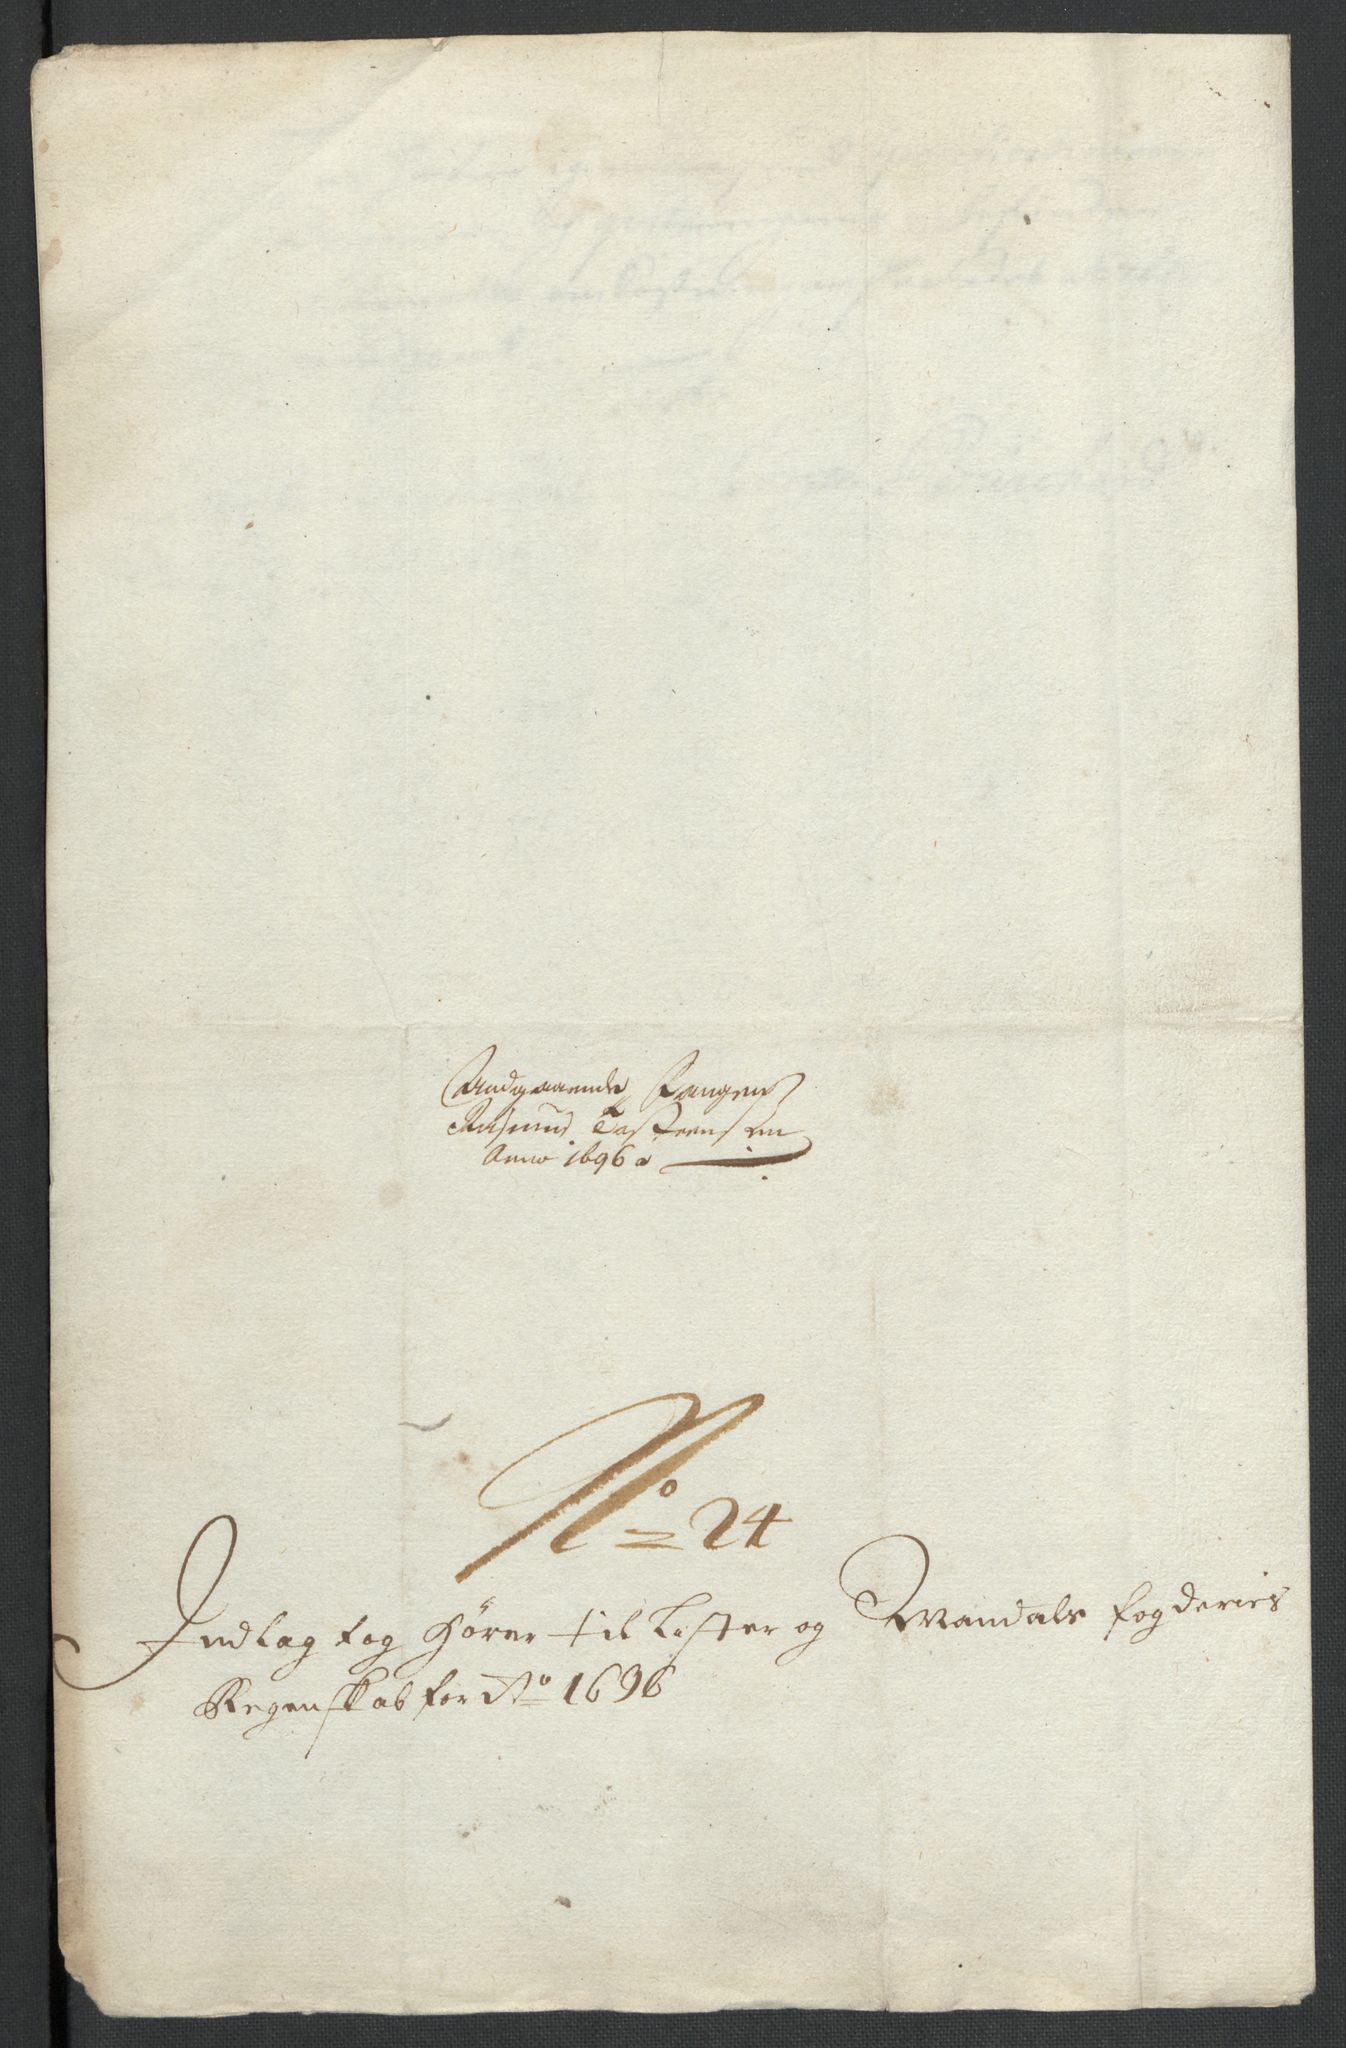 Andgaaende Fangen
Rasmus Tastensen
Anno 1696
No 24
Indlagt og hører til Lister og Mandals fogderies
Regenskab for Ao 1696